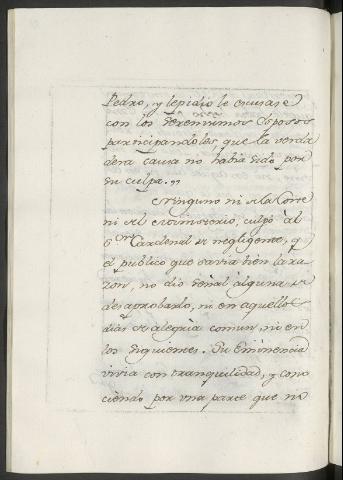 Pedro, y le pidió le escusase
con los Serenisimos Esposos
participandoles que la verda
dera causa no habia sido por
su culpa.,,
Ninguno ni de la Corte
ni del territorio, culpó al
S.or Cardenal de negligente, y
el publico que savia bien la ra
zon, no dio señal alguna de
desaprobarlo, ni en aquellos
dias de alegria comun, ni en
los siguientes. Su Eminencia
vivia con tranquilidad, y cono
ciendo por una parte que no